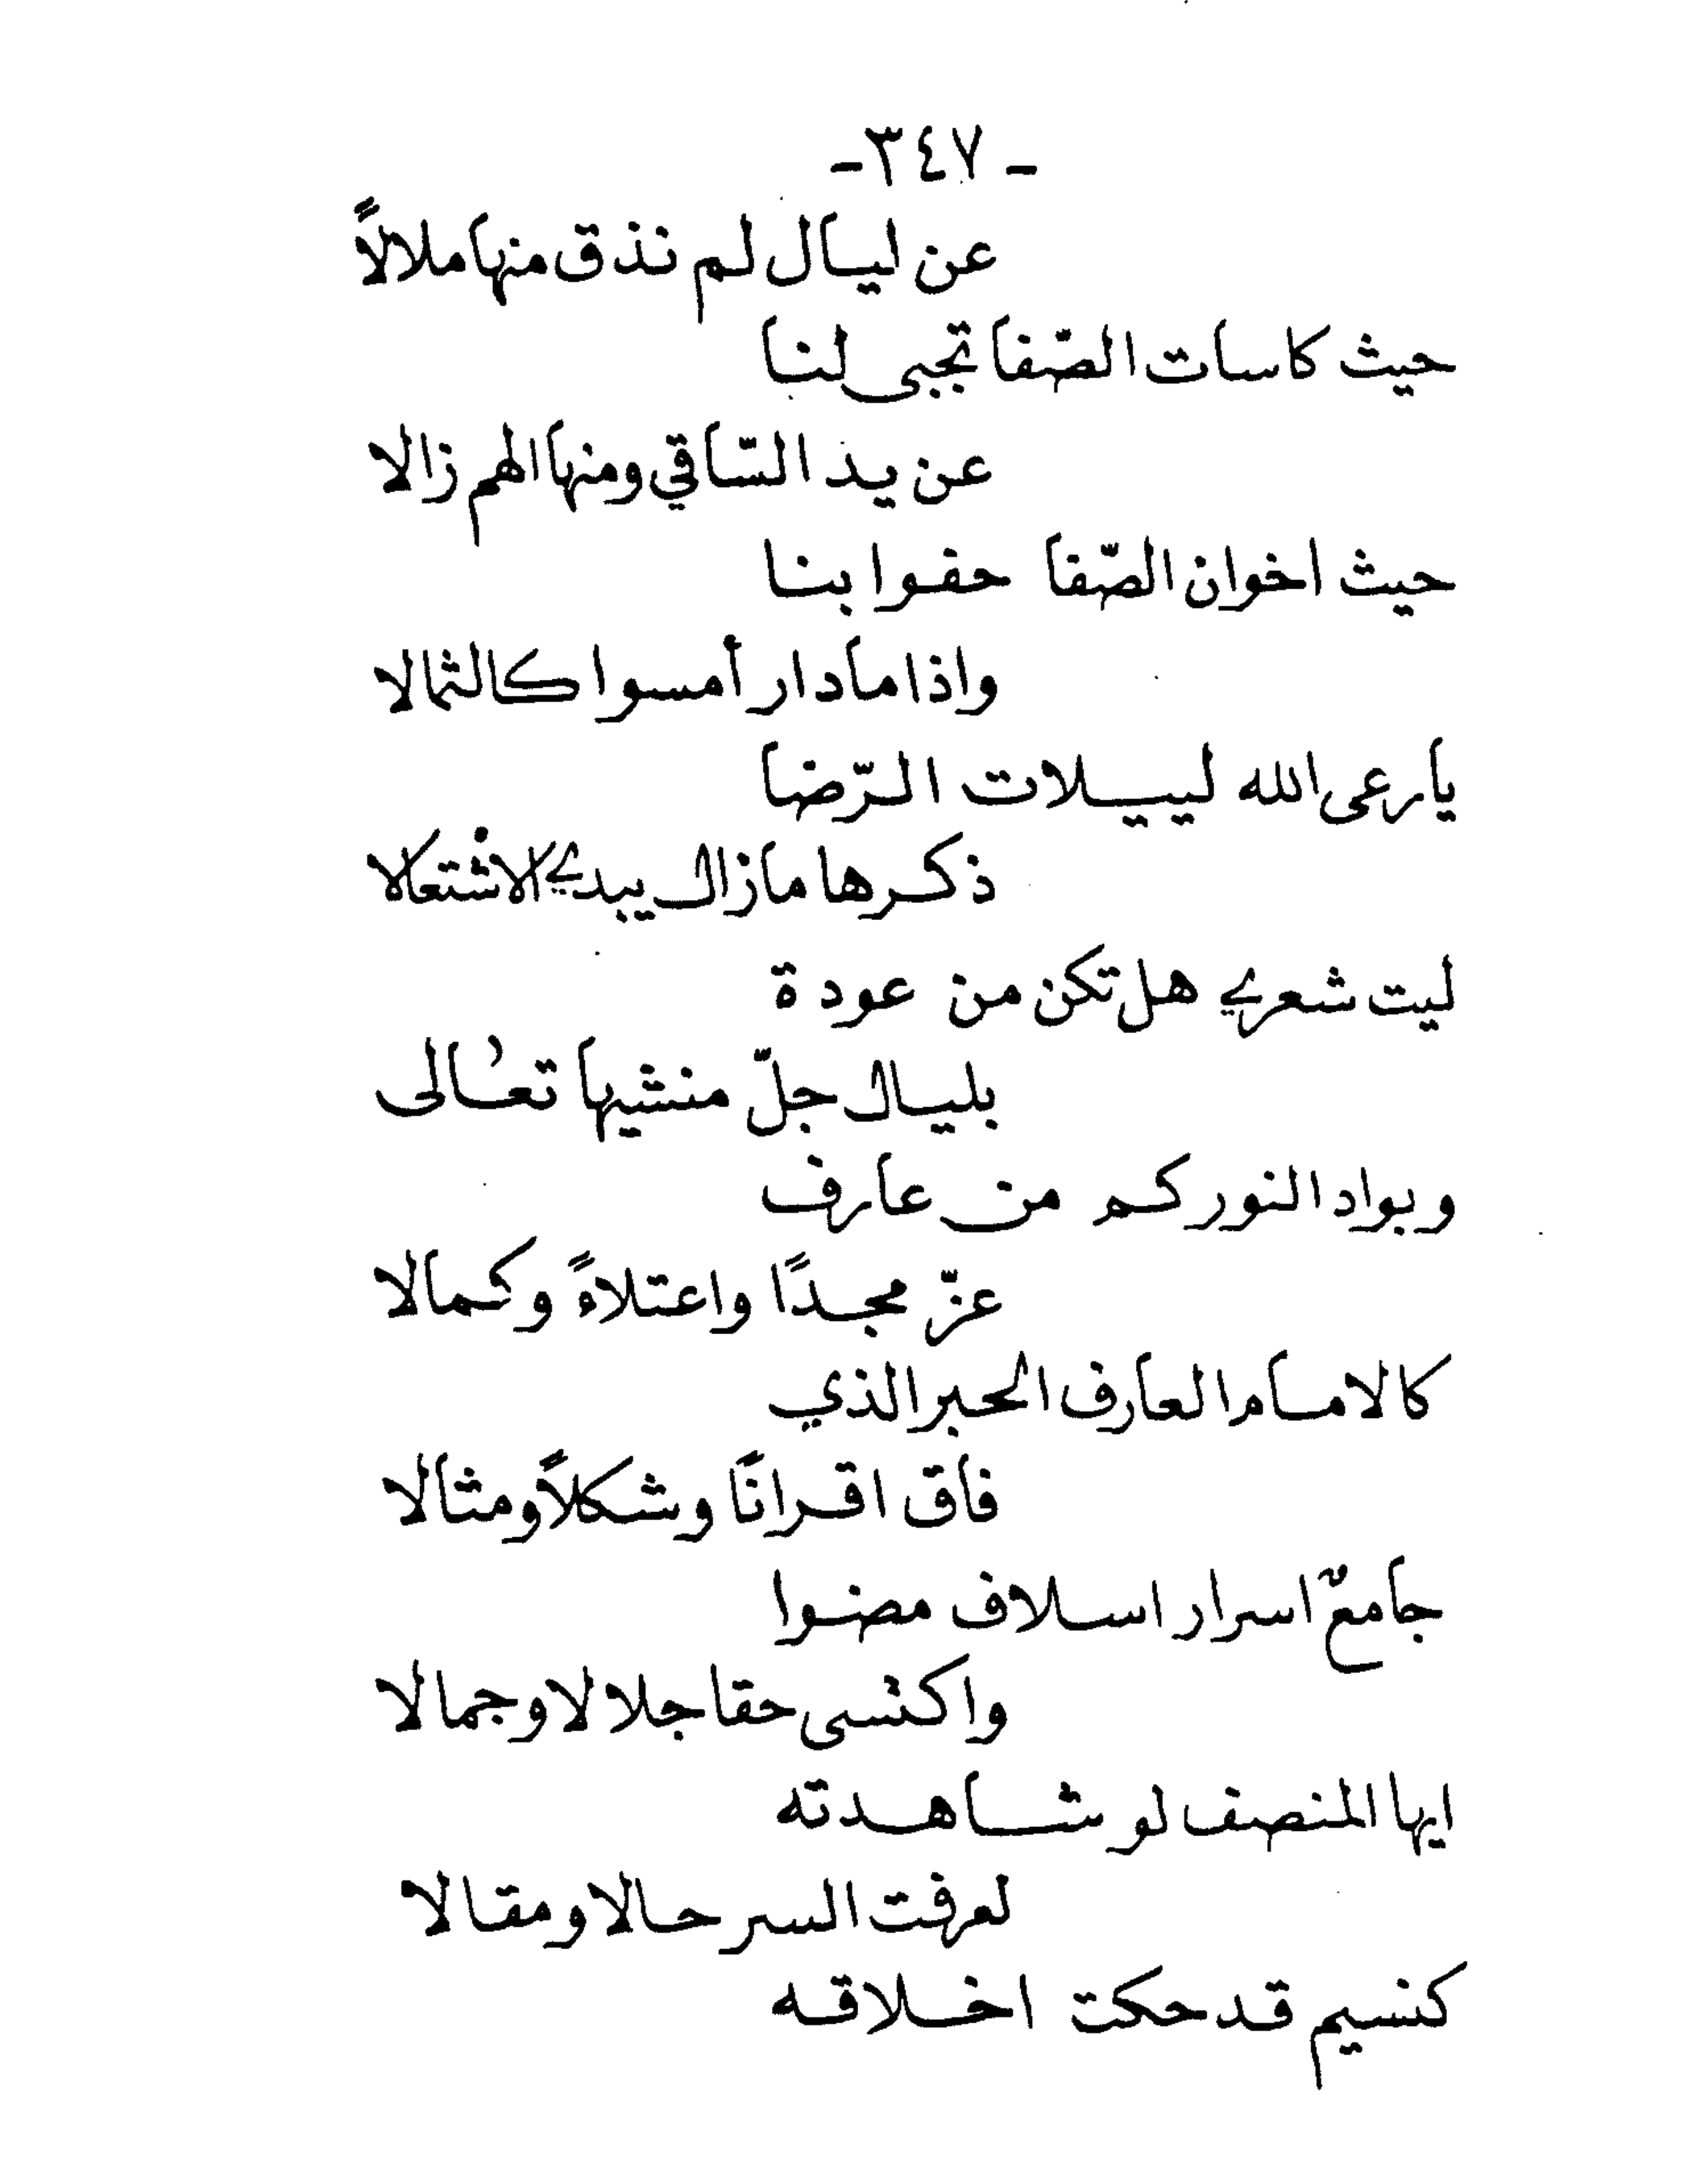 - ٣٤٧ -
عن ليال لم نذق منها ملالاً
حيث كاسات الصّفا تجبى لنا
عن يد السّاقي ومنها الهم زالا
حيث اخوان الصّفا حفوا بنا
واذا مادار أمسوا كالثمالا
يارعى الله لييلات الرّضا
ذكرها مازال يبدي الاشتعالا
ليت شعري هل تكن من عودة
بليال جلّ منشيها تعالى
وبواد النور كم من عارف
عزّ مجدًا واعتلاءً وكمالا
كالامام العارف الحبر الذي
فاق اقرانًا وشكلاً ومثالا
جامعٌ اسرار اسلاف مضوا
واكتسى حقا جلالا وجمالا
ايها المنصف لو شاهدته
لعرفت السر حالا ومقالا
كنسيم قد حكت اخلاقه